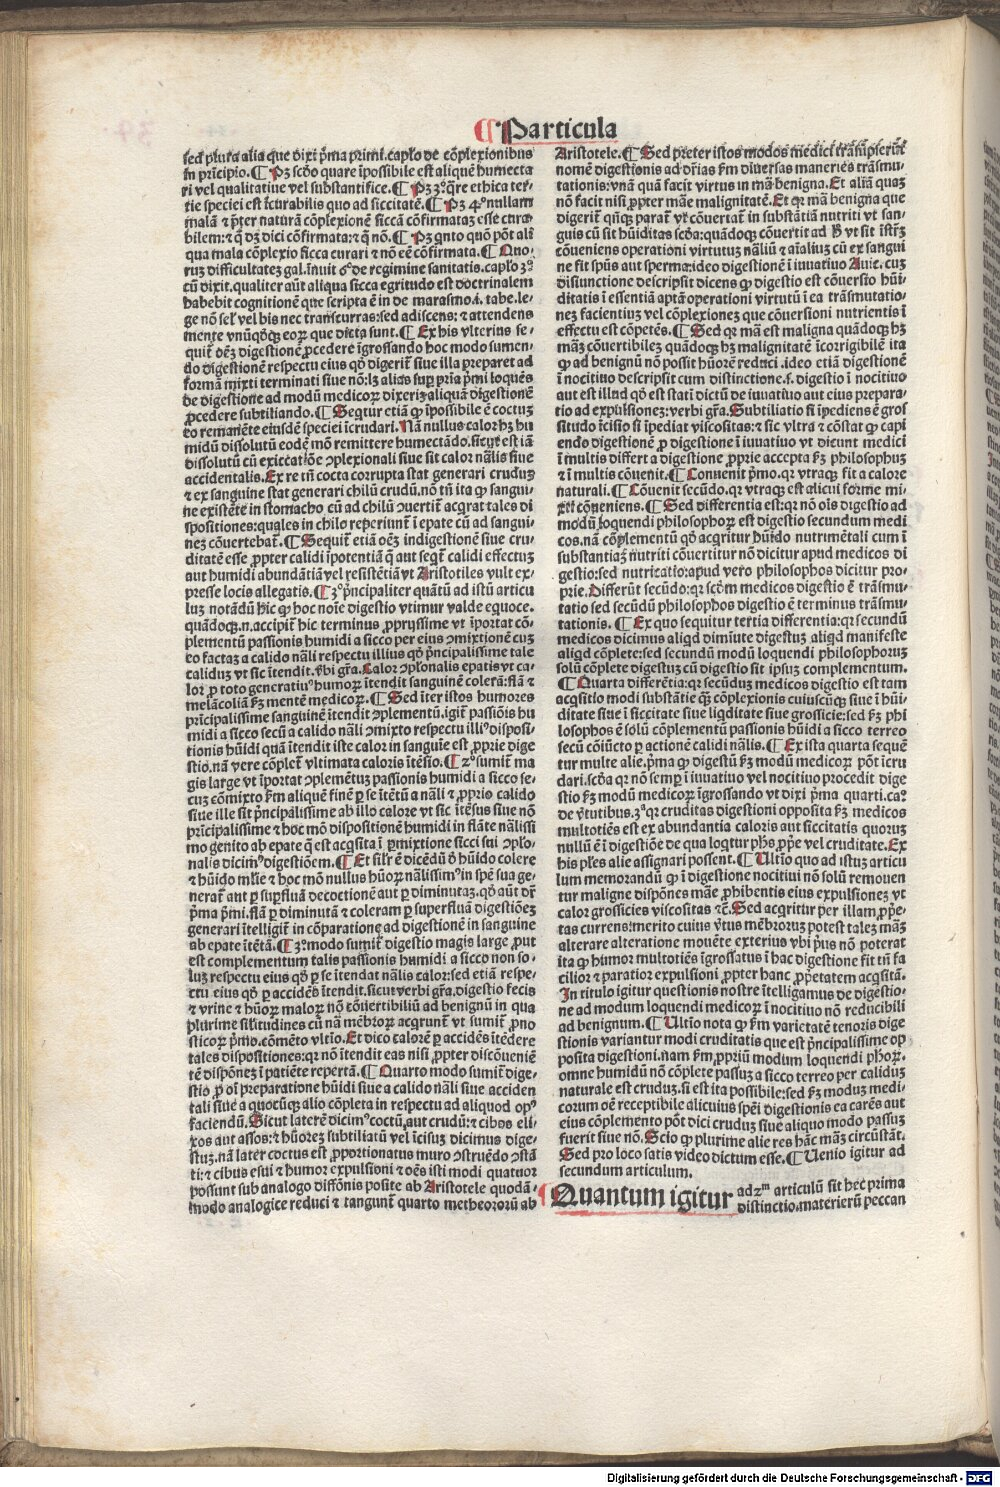 ¶ Particula
sed plura alia que dixi p̄ma primi. cap̄lo de cōplexionibus
in pricipio. ¶ Pꝫ scōo quare īpossibile est aliquē humecta
ri vel qualitatiue vel substantifice. ¶ Pꝫ 3.° q̄re ethica ter-
tie speciei est īcurabilis quo ad siccitatē. ¶ Pꝫ 4.° nullam
malā ⁊ p̄ter naturā cōplexionē siccā cōfirmataꝫ esse cura
bilem: ⁊ q̄ dꝫ dici cōfirmata: ⁊ q̄ nō. ¶ Pꝫ qnto quō pōt ali
qua mala cōplexio sicca curari ⁊ nō eē cōfirmata. ¶ Quo
rum difficultateꝫ gal. īnuit 6° de regimine sanitatis. cap̄lo 3°
cū dixit. qualiter aūt aliqua sicca egritudo est doctrinalem
habebit cognitionē que scripta ē in de marasmo .i. tabe. le-
ge nō sel̄ vel bis nec transcurras: sed adiscens: ⁊ attendens
mente vnūqōqꝫ eoꝝ que dicta sunt. ¶ Ex his vlterius se-
quit̄ oēꝫ digestionē ꝓcedere īgrossando hoc modo sumen-
do digestionē respectu eius qō digerit̄ siue illa preparet ad
formā mixti terminati siue nō: lꝫ alias sup̄ p̄ria p̄mi loquēs
de digestione ad modū medicoꝝ dixeriꝫ aliquā digestionē
ꝓcedere subtiliando. ¶ Seqtur etiā ꝙ īpossibile ē coctuꝫ
eo remanēte eiusdē speciei īcrudari. Nā nullus calor hꝫ hu
midū dissolutū eodē mō remittere humectādo. sicut est iā
dissolutū cū exiccat°ōe ꝯplexionali siue sit calor nālis siue
accidentalis. Ex re tn̄ cocta corrupta stat generari crudus
⁊ ex sanguine stat generari chilū crudū. nō tn̄ ita ꝙ sangui-
ne existēte in stomacho cū ad chilū ꝯuertit̄ acqrat tales di
spositiones: quales in chilo reperiunt̄ ī epate cū ad sangui-
neꝫ cōuertebat̄. ¶ Sequit̄ etiā oēꝫ indigestionē siue cru-
ditatē esse ꝓpter calidi īpotentiā q̄ aut seqt̄ calidi effectuꝫ
aut humidi abundātiā vel resistētiā vt Aristotiles vult ex-
presse locis allegatis. ¶ 3.° p̄ncipaliter quātū ad istū articu
luꝫ notādū h̄ic ꝙ hoc noīe digestio vtimur valde eqƲoce.
quādoqꝫ .n. accipit̄ hic terminus ꝓpryssime vt īportat cō-
plementū passionis humidi a sicco per eius ꝯmixtionē cuꝫ
eo factaꝫ a calido nāli respectu illius qō p̄ncipalissime tale
calidus vt sic ītendit. v̄bi gr̄a. Calor ꝯplonalis epatis vt ca-
lor ꝑ toto generatiu° humoꝝ ītendit sanguinē colerā: flā ⁊
melācoliā f̄ꝫ mentē medicoꝝ. ¶ Sed īter istos humores
pricipalissime sanguinē ītendit ꝯplementū. igit̄ passiōis hu
midi a sicco secū a calido nāli ꝯmixto respectu illi° disposi-
tionis hūidi quā ītendit iste calor in sanguīe est ꝓprie dige
stio. nā vere cōplet̄ vltimata caloris ītēsio. ¶ 2.° sumit̄ ma
gis large vt īportat ꝯplemētuꝫ passionis humidi a sicco se-
cuꝫ cōmixto f̄m aliquē finē ꝑ se ītētū a nāli ⁊ ꝓprio calido
siue ille sit p̄ncipalissime ab illo calore vt sic ītēsus siue nō
pricipalissime ⁊ hoc mō dispositionē humidi in flāte nālissi
mo genito ab epate q̄ est acqsita ī ꝑmixtione sicci sui ꝯplo-
nalis dicim° digestiōem. ¶ Et sil̄r ē dicēdū ō hūido colere
⁊ hūido mlīe ⁊ hoc mō nullus hūoꝝ nālissim° in spē sua ge-
nerat̄ aut ꝑ supfluā decoctionē aut ꝑ diminutaꝫ. qō aūt dr̄
p̄ma p̄mi. flā ꝑ diminutā ⁊ coleram ꝑ superfluā digestiōeꝫ
generari ītelligit̄ in cōparatione ad digestionē in sanguine
ab epate ītētā. ¶ 3.° modo sumit̄ digestio magis large ꝓut
est complementum talis passionis humidi a sicco non so-
luꝫ respectu eius qō ꝑ se ītendat nālis calor: sed etiā respe-
ctu eius qō ꝑ accidēs ītendit. sicut verbi gr̄a. digestio fecis
⁊ vrine ⁊ hūoꝝ maloꝝ nō cōuertibiliū ad benignū in qua
plurime sil̄itudines cū nā mēbroꝝ acqrunt̄ vt sumit̄ ꝓno
sticoꝝ p̄mo. cōmēto vltīo. Et dico calorē ꝑ accidēs ītēdere
tales dispositiones: qꝛ nō ītendit eas nisi ꝓpter discōueniē
tē dispōneꝫ ī patiēte repertā. ¶ Quarto modo sumit̄ dige-
stio ꝓ oī preparatione hūidi siue a calido nāli siue acciden
tali siue a quocūqꝫ alio cōpleta in respectu ad aliquod op°
faciendū. Sicut laterē dicim° coctū ꝓut crudū: ⁊ cibos eli-
xos aut assos: ⁊ hūoreꝫ subtiliatū vel īcisuꝫ dicimus dige-
stuꝫ. nā later coctus est ꝓportionatus muro ꝯstruēdo ꝯstā
ti: ⁊ cibus esui ⁊ humor expulsioni ⁊ oēs isti modi quatuor
possunt sub analogo diffōnis posite ab Aristotele quodā-
modo analogice reduci ⁊ tangunt̄ quarto metheororū ab
Aristotele. ¶ Sed preter istos modos medici trāsūpserūt
nomē digestionis ad dr̄ias f̄m diuersas maneries trāsmu-
tationis: vnā quā facit virtus in mā benigna. Et aliā quaꝫ
nō facit nisi ꝓpter māe malignitatē. Et qꝛ mā benigna que
digerit̄ qn̄qꝫ parat̄ vt cōuertat̄ in substātiā nutriti vt san-
guis cū sit hūiditas scōa: quādoqꝫ cōuertit̄ ad Ꝟ vt sit īstr̄ꝫ
cōueniens operationi virtutuꝫ nāliū ⁊ aīaliuꝫ cū ex sangui
ne fit spūs aut sperma: ideo digestionē ī iuuatiuo Auic. cuꝫ
disiunctione descripsit dicens ꝙ digestio est cōuersio hūi-
ditatis ī essentiā aptā operationi virtutū ī ea trāsmutatio-
neꝫ facientiuꝫ vel cōplexioneꝫ que cōuersioni nutrientis ī
effectu est cōpetēs. ¶ Sed qꝛ mā est maligna quādoqꝫ hꝫ
māꝫ cōuertibileꝫ quādoqꝫ hꝫ malignitatē īcorrigibilē ita
ꝙ ad benignū nō possit hūorē reduci. ideo etiā digestionē
ī nocitiuo descripsit cum distinctione .s. digestio ī nocitiuo
aut est illud qō est stati dictū de iuuatiuo aut eius prepara-
tio ad expulsioneꝫ: verbi gr̄a. Subtiliatio si īpediens ē gros
situdo īcisio si īpediat viscositas: ⁊ sic vltra ⁊ cōstat ꝙ capi
endo digestionē ꝓ digestione ī iuuatiuo vt dicunt medici
ī multis differt a digestione ꝓprie accepta f̄ꝫ philosophuꝫ
⁊ ī multis cōuenit. ¶ Conuenit p̄mo. qꝛ vtraqꝫ fit a calore
naturali. ¶ Cōuenit secūdo. qꝛ vtraqꝫ est alicui forme mi-
xti cōueniens. ¶ Sed differentia est: qꝛ nō oīs digestio ad
modū loquendi philosophoꝝ est digestio secundum medi
cos. nā cōplementū qō acqritur hūido nutrimētali cum ī
substantiaꝫ nutriti cōuertitur nō dicitur apud medicos di
gestio: sed nutricatio: apud vero philosophos dicitur pro-
prie. Differūt secūdo: qꝛ scōm medicos digestio ē trāsmu-
tatio sed secūdū philosophos digestio ē terminus trāsmu-
tationis. ¶ Ex quo sequitur tertia differentia: qꝛ secundū
medicos dicimus aliqd dimiute digestuꝫ aliqd manifeste
aliqd cōplete: sed secundū modū loquendi philosophoꝝ
solū cōplete digestuꝫ cū digestio sit ipsuꝫ complementum.
¶ Quarta differētia: qꝛ secūduꝫ medicos digestio est tam
acqsitio modi substātie qꝫ cōplexionis cuiuscūqꝫ siue ī hūi-
ditate siue ī siccitate siue liqditate siue grossicie: sed f̄ꝫ phi
losophos ē solū cōplementū passionis hūidi a sicco terreo
secū cōiūcto ꝑ actionē calidi nālis. ¶ Ex ista quarta sequē
tur multe alie. p̄ma ꝙ digestū f̄ꝫ modū medicoꝝ pōt īcru
dari. scōa qꝛ nō semp̄ ī iuuatiuo vel nocitiuo procedit dige
stio f̄ꝫ modū medicoꝝ īgrossando vt dixi p̄ma quarti. ca°
de v̄tutibus. 3ᵃ qꝛ cruditas digestioni opposita f̄ꝫ medicos
multotiēs est ex abundantia caloris aut siccitatis quoruꝫ
nullū ē ī digestiōe de qua loqtur phs ꝓp̄e vel cruditate. Ex
his pl̄es alie assignari possent. ¶ Ultīo quo ad istuꝫ articu
lum memorandū ꝙ ī digestione nocitiui nō solū remouen
tur maligne dispōnes māe ꝓhibentis eius expulsioneꝫ vt
calor grossicies viscositas ⁊c̄. Sed acqritur per illam ꝓp̄e-
tas currens: merito cuius v̄tus mēbroruꝫ potest taleꝫ māꝫ
alterare alteratione mouēte exterius vbi p̄us nō poterat
ita ꝙ humor multotiēs īgrossatus ī hac digestione fit tn̄ fa
cilior ⁊ paratior expulsioni ꝓpter hanc ꝓp̄etatem acqsitā.
In titulo igitur questionis nostre ītelligamus de digestio-
ne ad modum loquendi medicoꝝ ī nocitiuo nō reducibili
ad benignum. ¶ Ultīo nota ꝙ f̄m varietatē tenoris dige
stionis variantur modi cruditatis que est p̄ncipalissime op
posita digestioni. nam f̄m ꝓpriū modum loquendi phoꝝ.
omne humidū nō cōplete passuꝫ a sicco terreo per caliduꝫ
naturale est cruduꝫ. si est ita possibile: sed f̄ꝫ moduꝫ medi-
corum oē receptibile alicuius spēi digestionis ea carēs aut
eius cōplemento pōt dici cruduꝫ siue aliquo modo passuꝫ
fuerit siue nō. Scio ꝙ plurime alie res hāc māꝫ circūstāt.
Sed pro loco satis video dictum esse. ¶ Uenio igitur ad
secundum articulum.
¶ Quantum igitur ad 2ᵐ articulū sit hec prima
distinctio. materierū peccan
Digitalisierung gefördert durch die Deutsche Forschungsgemeinschaft - DFG